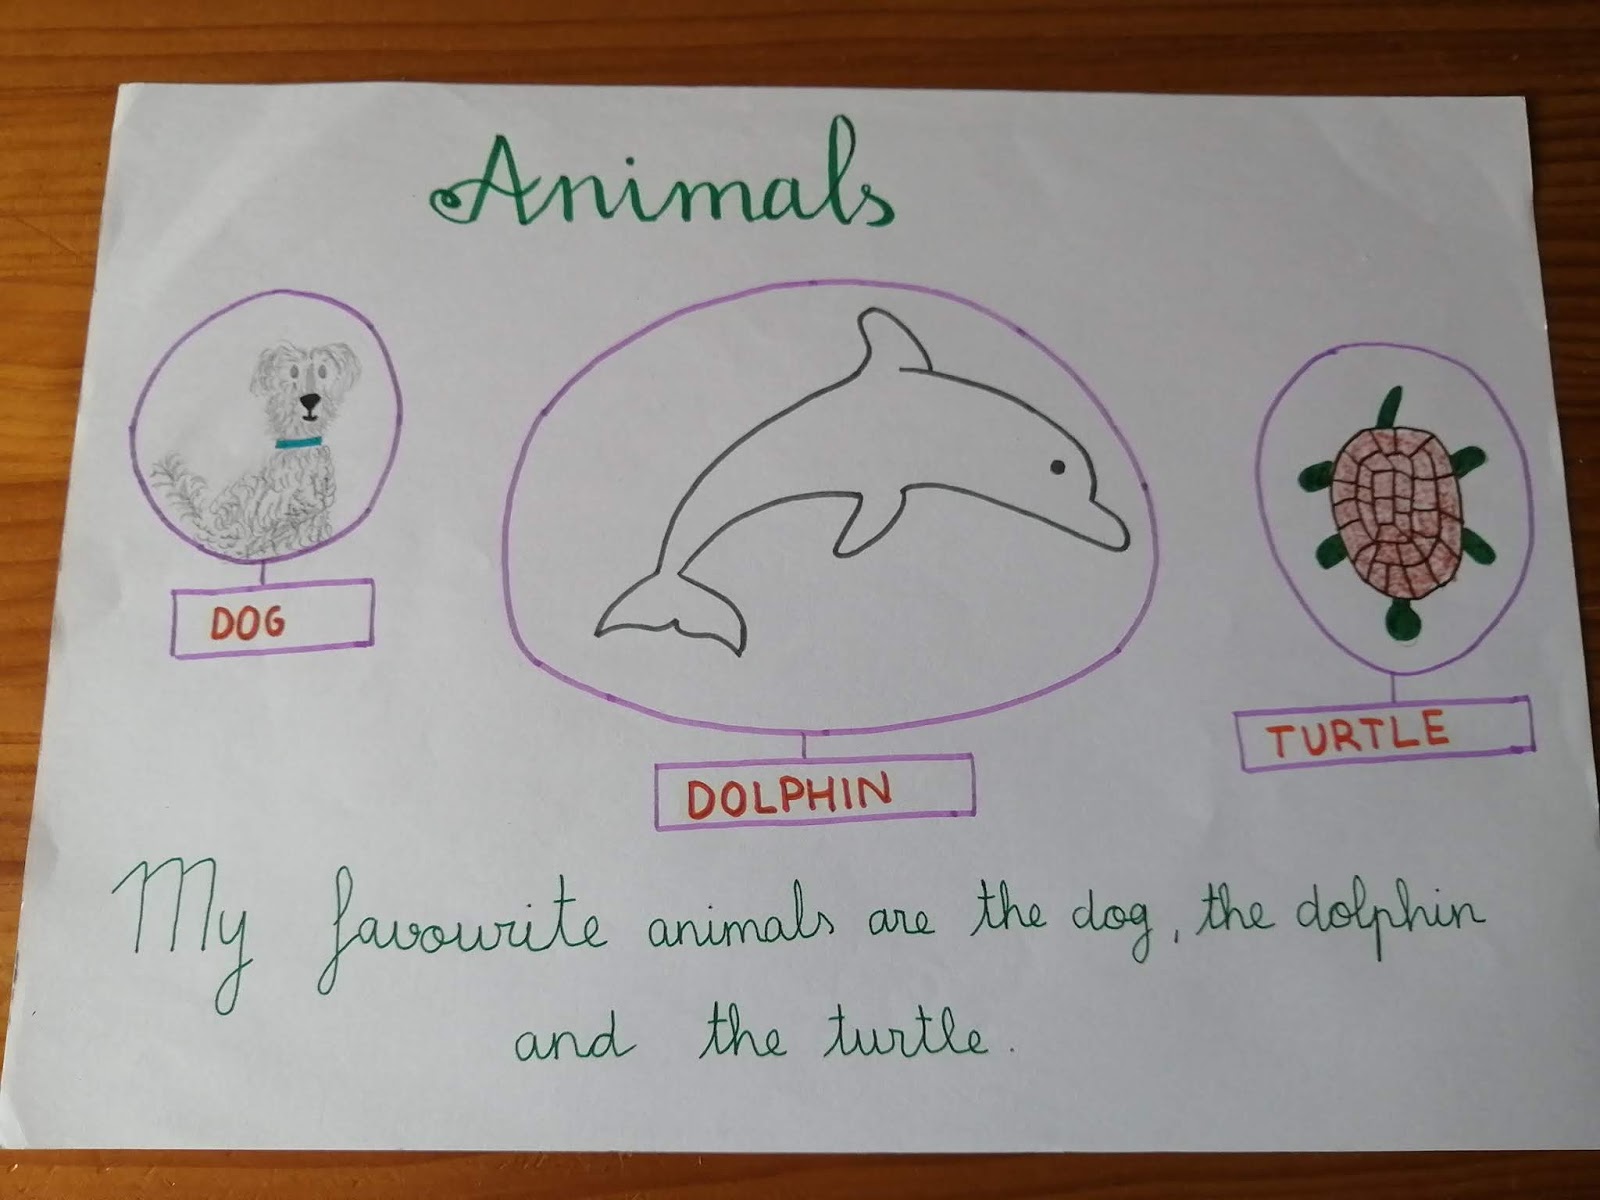 Animals
DOG
DOLPHIN
TURTLE
My favourite animals are the dog, the dolphin
and the turtle.